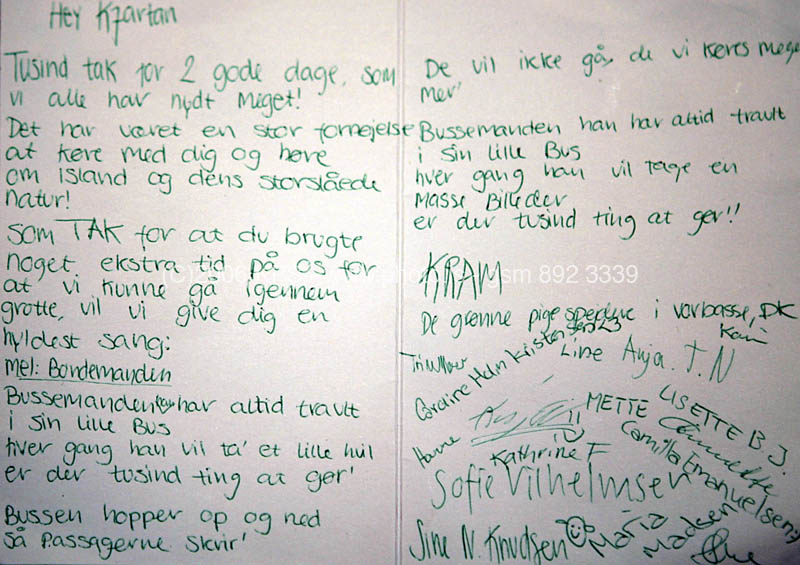 Hey Kjartan
Tusind tak for 2 gode dage, som
vi alle har nydt meget!
Det har været en stor fornøjelse
at køre med dig og høre
om island og dens storslåede
natur!
Som TAK for at du brugte
noget ekstra tid på os for
at vi kunne gå igennem
grotte, vil vi give dig en
hyldest sang:
Mel: Bondemanden
Bussemanden har altid travlt
i sin lille Bus
hver gang han vil ta' et lille hvil
er der tusind ting at gør'
Bussen hopper op og ned
så Passagerne skrir'
De vil ikke gå, de vi køres mege
mer'
Bussemanden han har altid travlt
i sin lille Bus
hver gang han vil tage en
Masse Billeder
er der tusind ting at gør!!
KRAM
De grønne pigespejdere i vorbasse, DK
Line Anja. J. N
Kristensen
METTE LISETTE B. J.
Hanne
Kathrine F
Camilla Emanuelsen
Sofie Vilhelmsen
Sine N. Knudsen
Maria Madsen
(C)2006 sm 892 3339